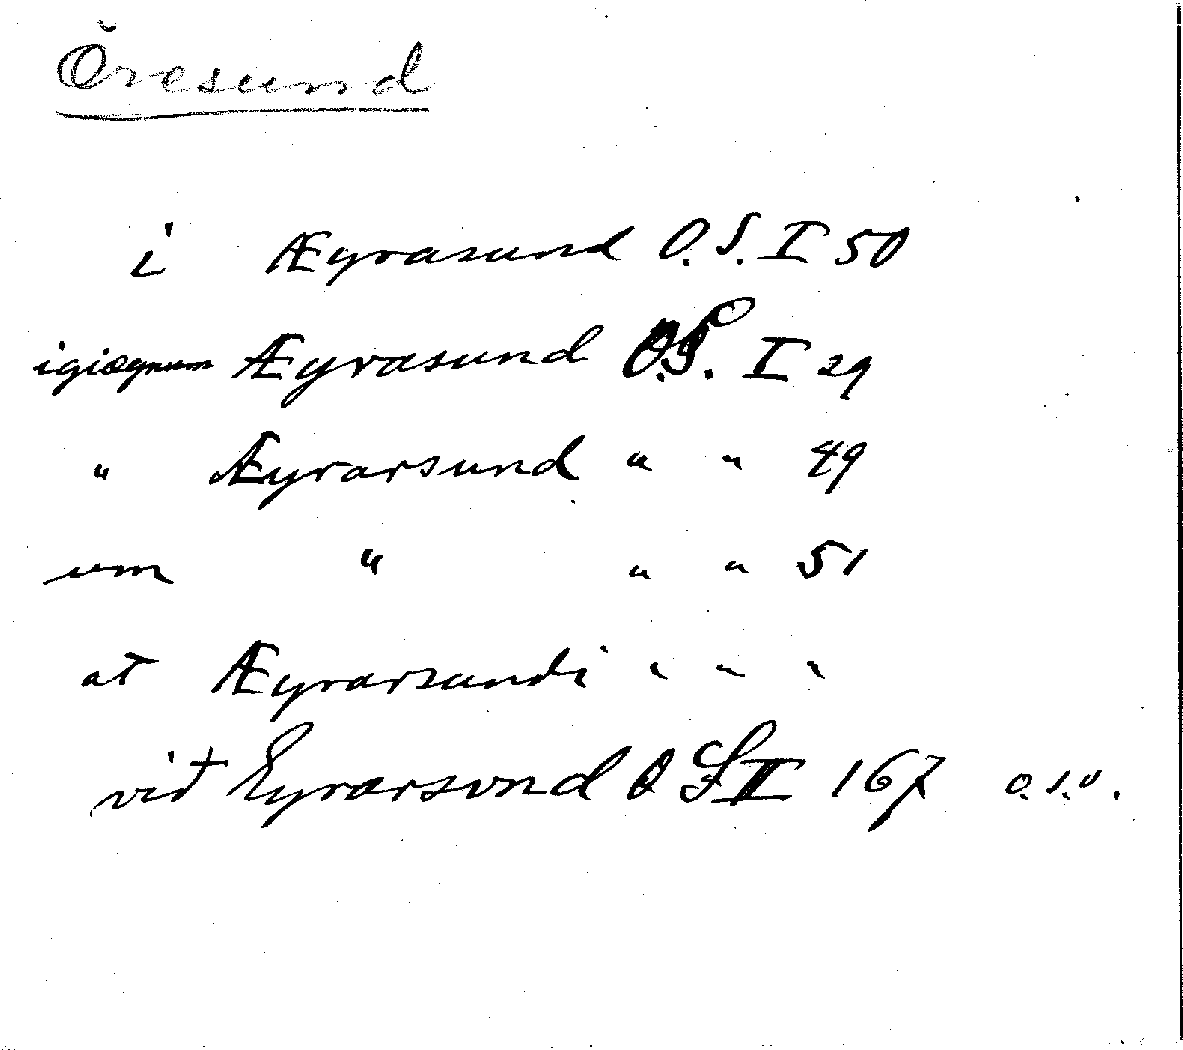 Öresund
i Æyrasund O.S. I 50
igiægnum Æyrasund O.S. I 29
" Æyrarsund " " 49
um " " " 51
at Æyrarsundi " " "
vid Eyrarsund O S II 167 o.s.v.